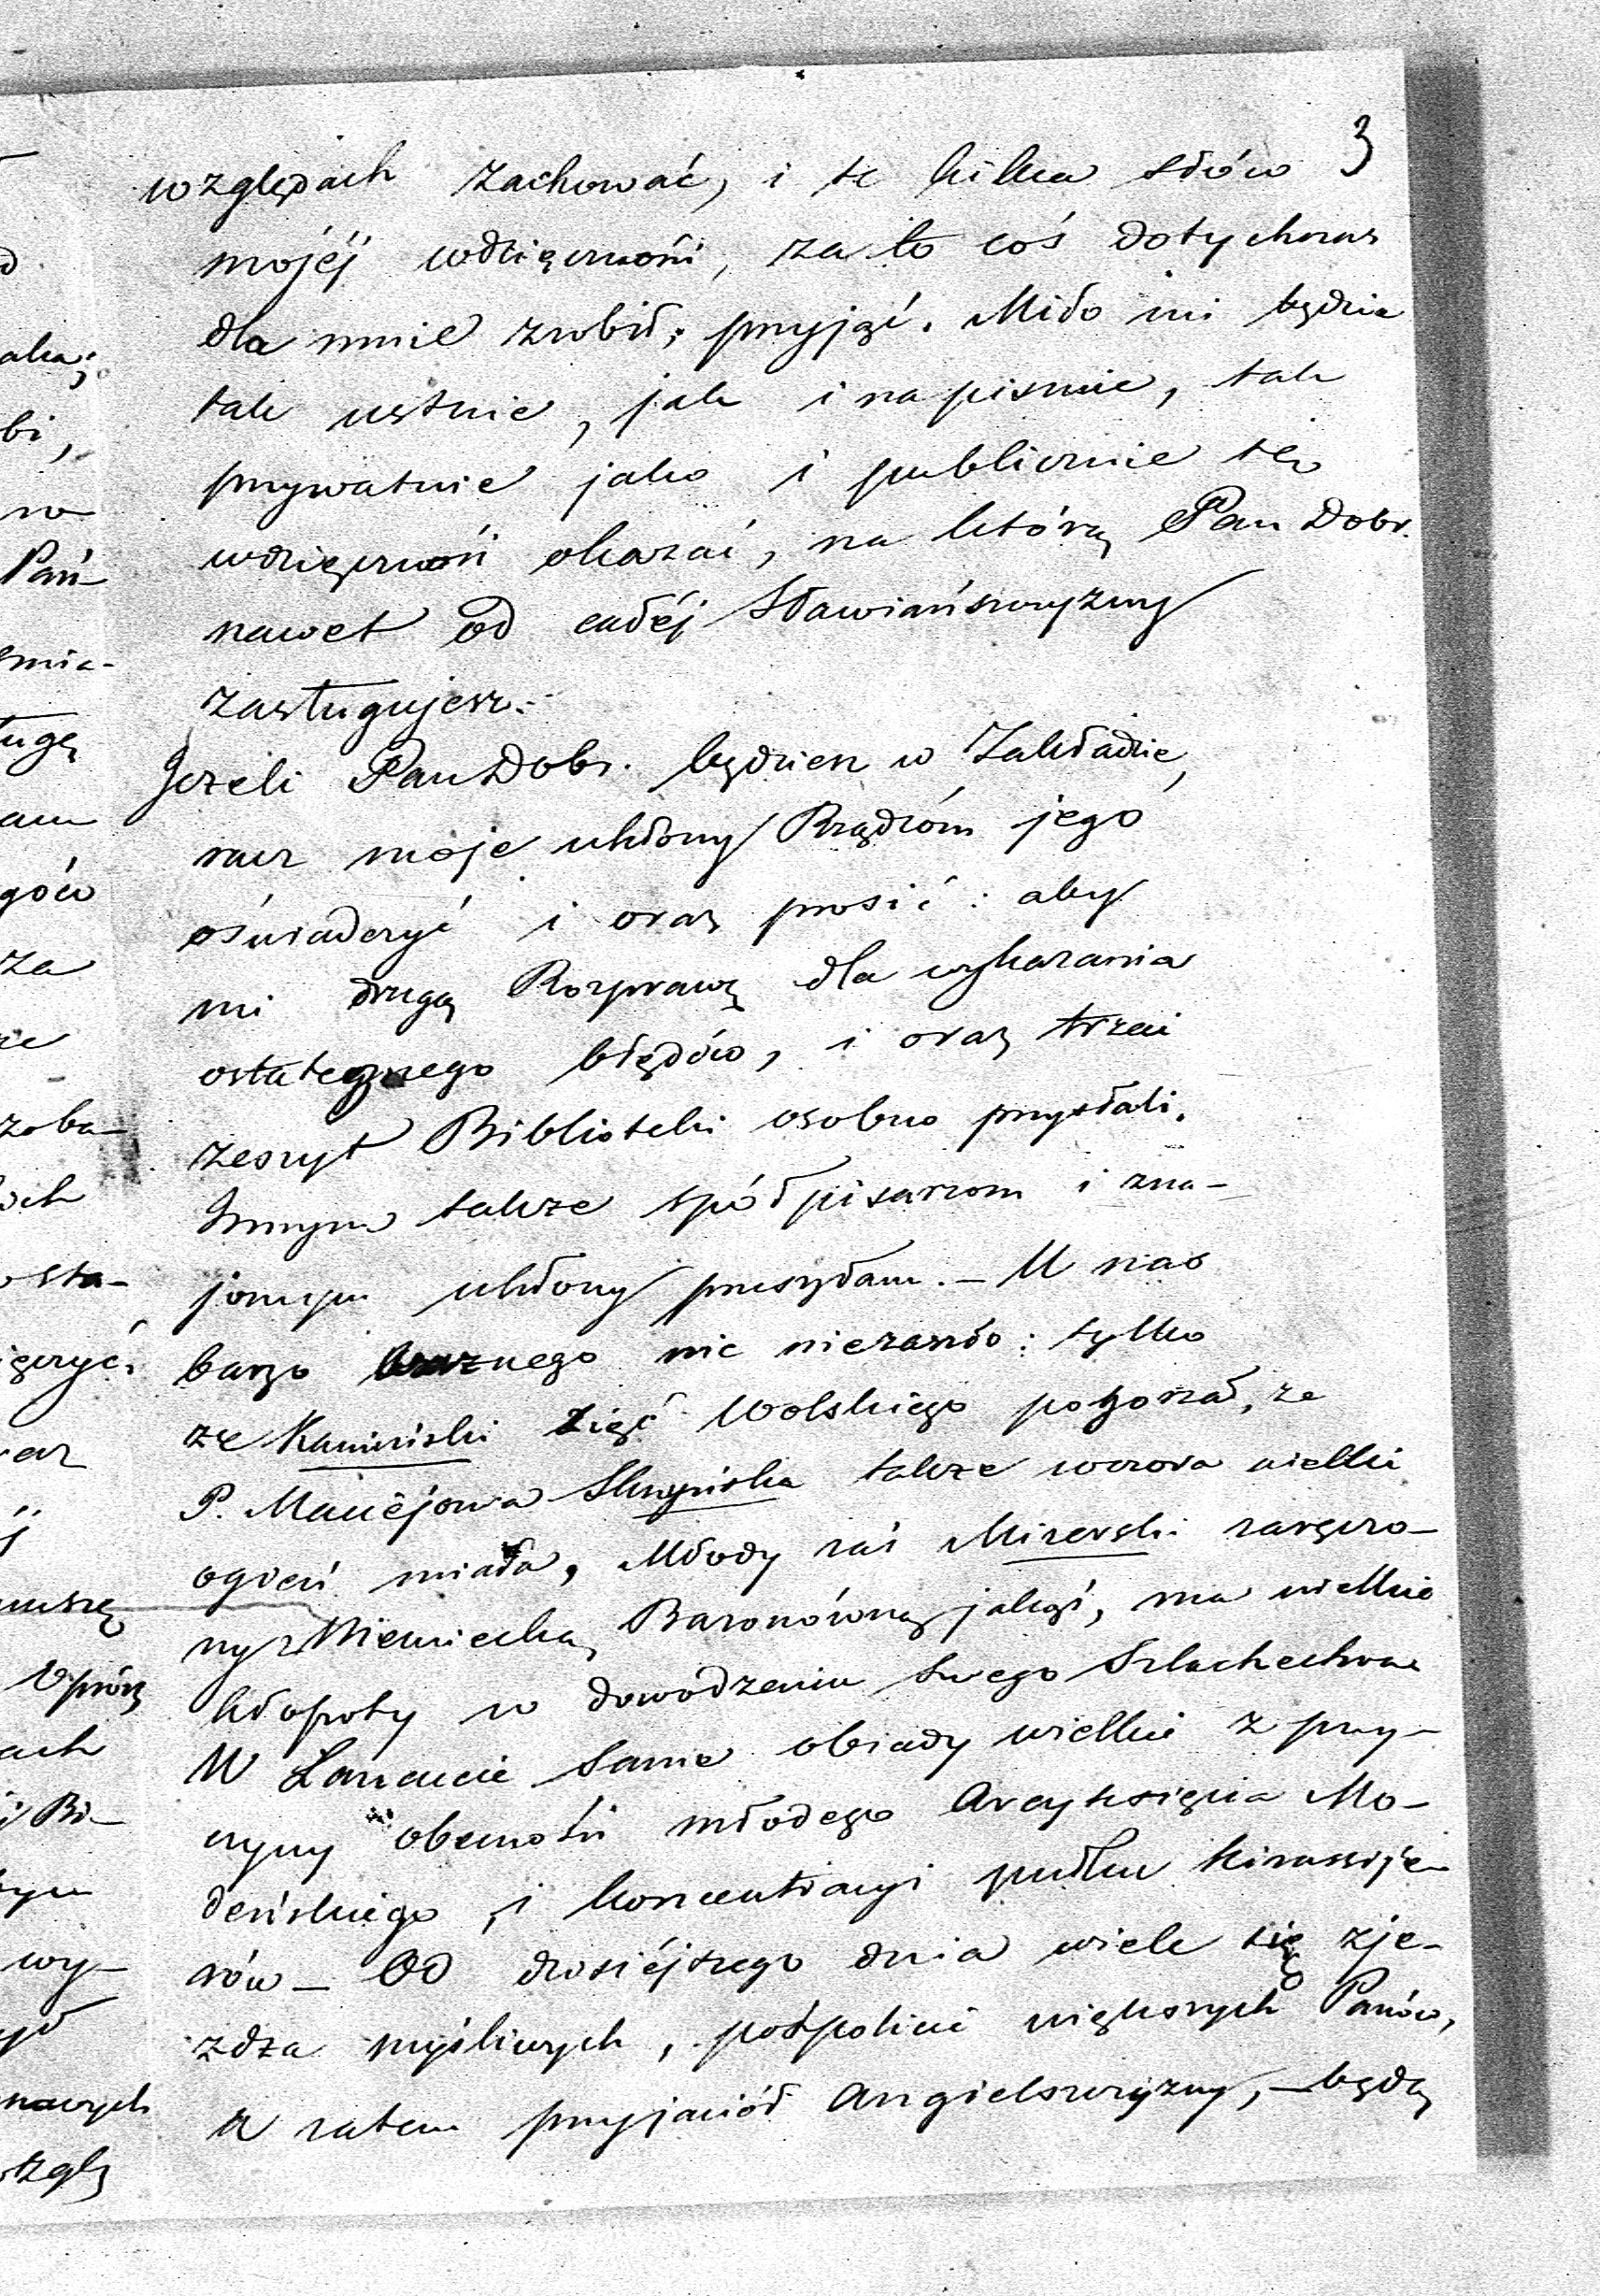 3
względach zachować, i te kilka słów
mojéj wdzięczności, za to coś dotychczas
dla mnie zrobił; przyjąć. Miło mi będzie
tak ustnie, jak i na pismie, tak
prywatnie jako i publicznie tę
wdzięczność okazać, na którą Pan Dobr.
nawet od całéj Sławiańszczyzny
zasługujesz.-
Jeżeli Pan Dobr. będziesz w Zakładzie,
racz moje ukłony Rządcóm jego
oświadczyć i oraz prosić: aby
mi drugą Rozprawę dla wykazania
ostatecznego błędów, i oraz trzeci
zeszyt Biblioteki osobno przysłali.
Innym także spółpisarzom i zna-
jomym ukłony przesyłam. – U nas
barzo ważnego nic niezaszło: tylko
że Kamiński zięć Wolskiego pogorzał, że
P. Maciéjowa Skrzyńska także wczora wielki
ogień miała, Młody zaś Mizerski zaręczo-
ny z Niemiecką Baronówną jakąś, ma wielkie
kłopoty w dowodzeniu swego Szlachectwa
W Łancucie same obiady wielkie z przy-
czyny obecności młodego Arcyksięcia Mo-
deńskiego, i koncentracyi pułku kirassije-
rów – Od dzisiéjszego dnia wiele się zje-
zdza myśliwych, pospolicie większych Panów,
a zatem przyjaciół Angielszczyzny, – będą